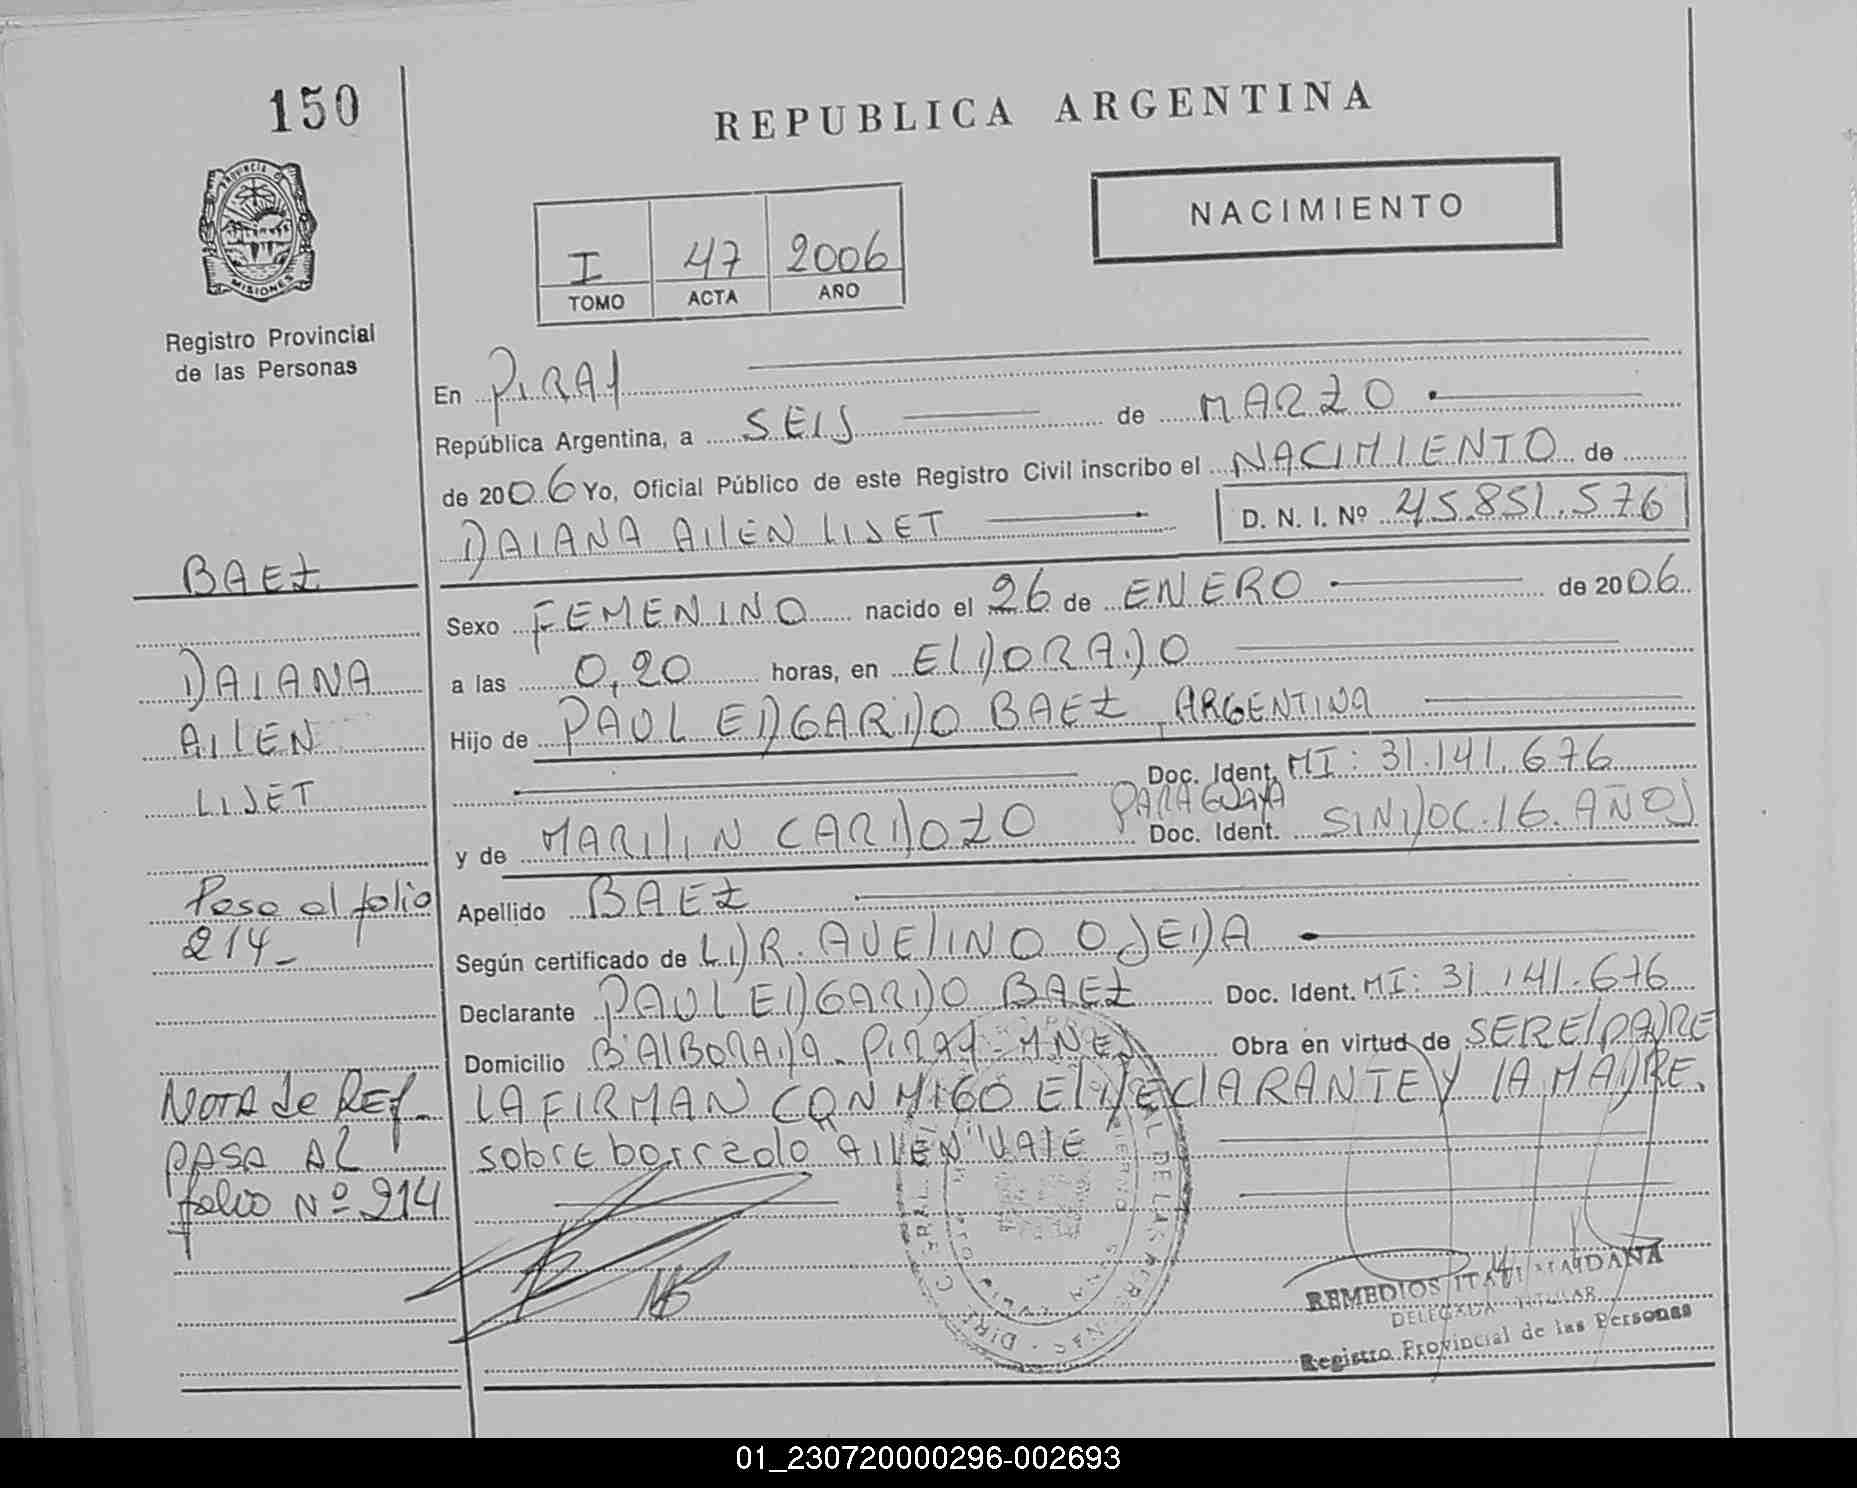 150
REPUBLICA ARGENTINA
PROVINCIA DE
MISIONES
Registro Provincial
de las Personas
NACIMIENTO
I 47 2006
TOMO ACTA AÑO
En PIRAY
República Argentina, a SEIS de MARZO
de 2006 Yo, Oficial Público de este Registro Civil inscribo el NACIMIENTO de
DAIANA AILEN LISET D. N. I. Nº 45.851.576
BAEZ
DAIANA
AILEN
LISET
Sexo FEMENINO nacido el 26 de ENERO de 2006
a las 0,20 horas, en ELDORADO
Hijo de PAUL EDGARDO BAEZ, ARGENTINA
Doc. Ident. MI: 31.141.676
y de MARILIN CARDOZO PARAGUAYA Doc. Ident. SIN DOC. 16. AÑOS
Apellido BAEZ
Según certificado de L DR. AVELINO OJEDA
Declarante PAUL EDGARDO BAEZ Doc. Ident. MI: 31.141.676
Domicilio Bº ALBORADA - PIRAY - MNES Obra en virtud de SER EL PADRE
LA FIRMAN CONMIGO EL DECLARANTE Y LA MADRE.
sobre borrado AILEN "VALE
Pasa al folio
214-
NOTA de REF.
PASA AL
folio Nº 214
REMEDIOS ITATI
DELEGADA TITULAR
Registro Provincial de las Personas
01_230720000296-002693